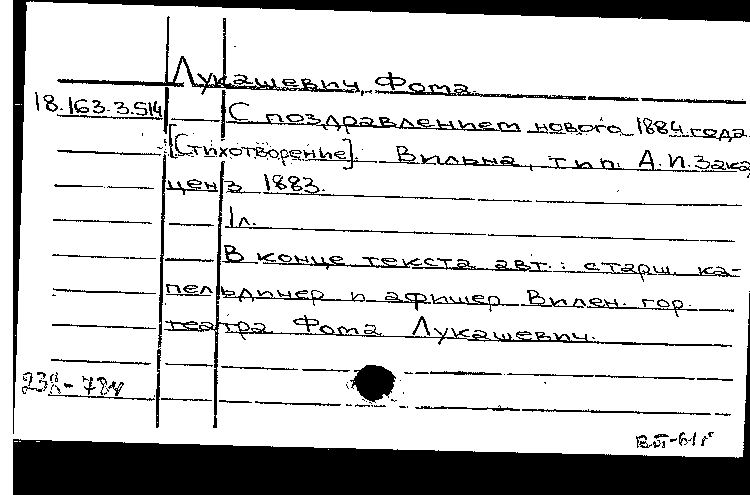 Лукашевич, Фома.
18.163.3.514
С поздравлением нового 1884 года.
[Стихотворение]. Вильна, тип. А.И. Зака,
ценз 1883.
1л.
В конце текста авт.: старш. ка-
пельдинер и афишер Вилен. гор.
театра Фома Лукашевич.